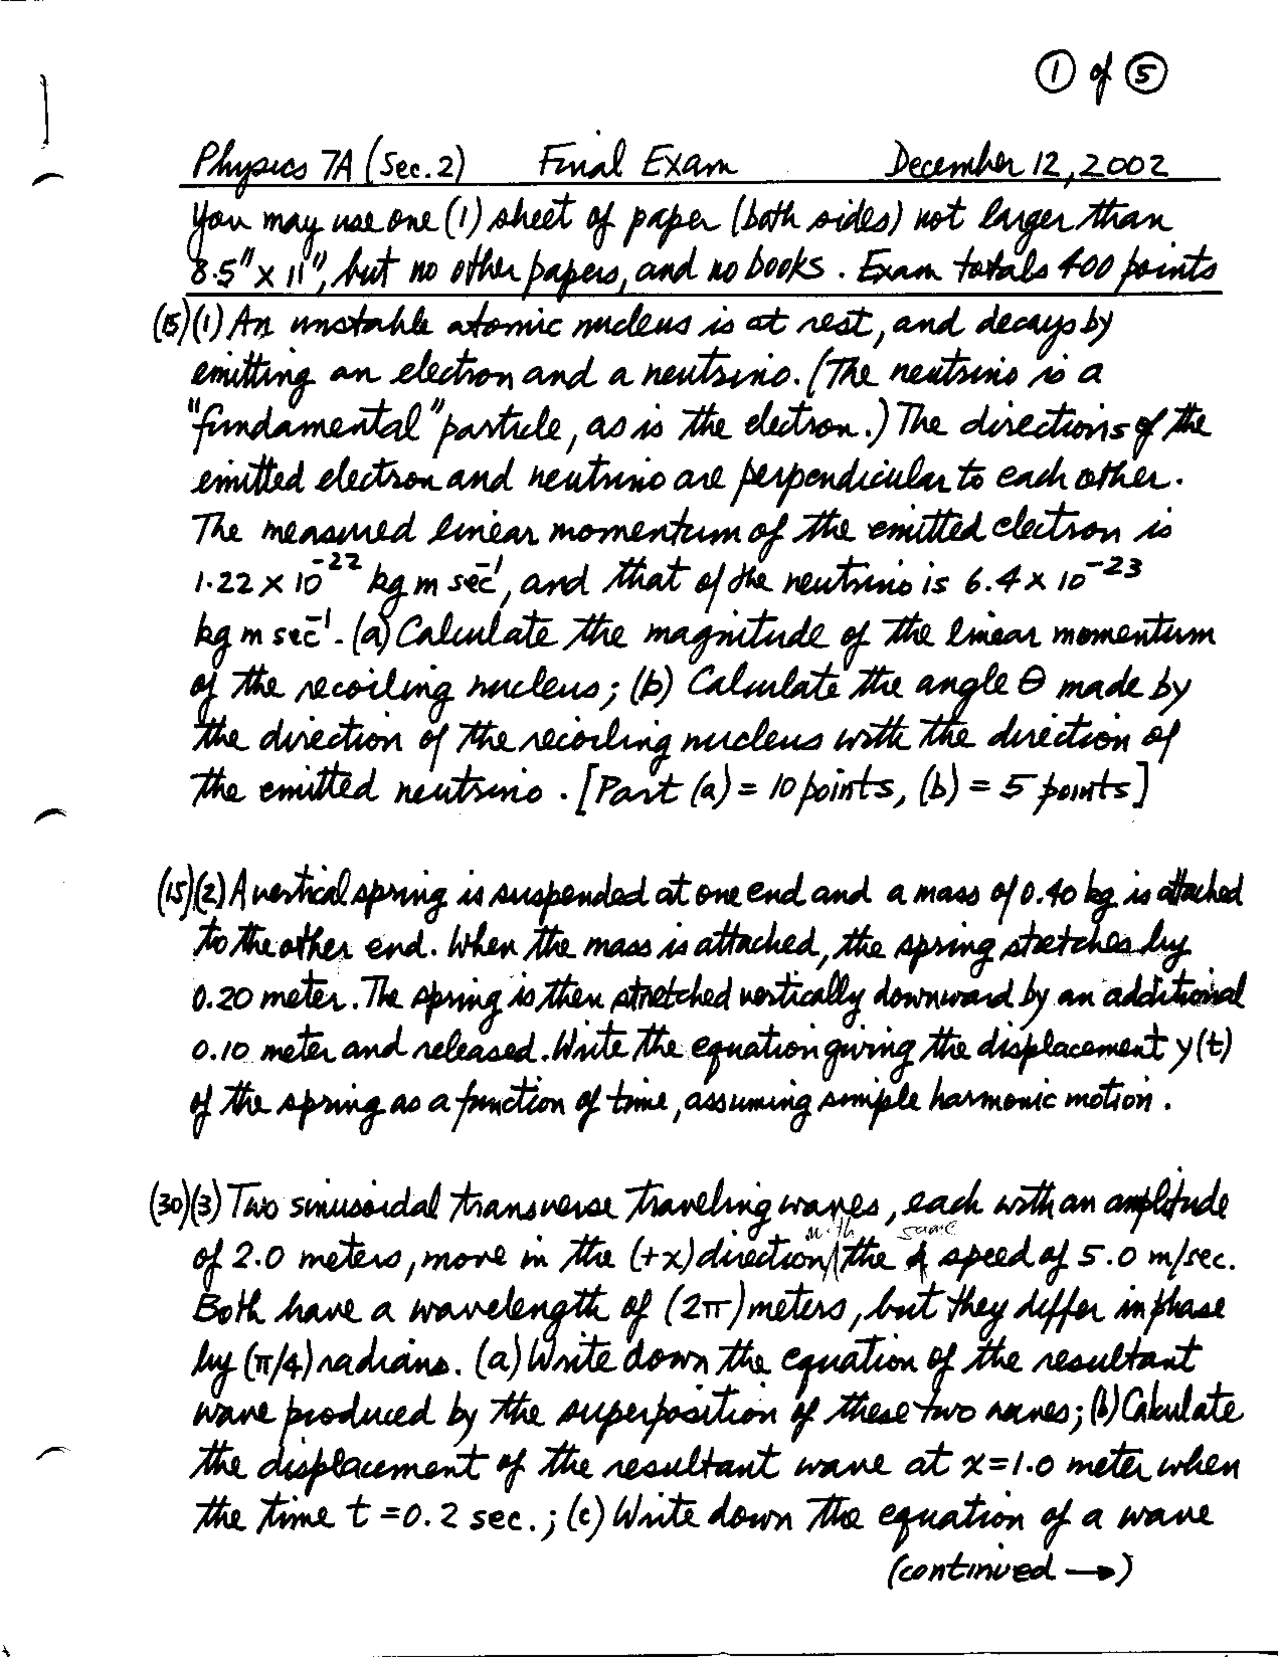 ① of ⑤
Physics 7A (Sec. 2) Final Exam December 12, 2002
You may use one (1) sheet of paper (both sides) not larger than
8.5" x 11", but no other papers, and no books. Exam totals 400 points
(15)(1) An unstable atomic nucleus is at rest, and decays by
emitting an electron and a neutrino. (The neutrino is a
"fundamental" particle, as is the electron.) The directions of the
emitted electron and neutrino are perpendicular to each other.
The measured linear momentum of the emitted electron is
1.22 x 10⁻²² kg m sec⁻¹, and that of the neutrino is 6.4 x 10⁻²³
kg m sec⁻¹. (a) Calculate the magnitude of the linear momentum
of the recoiling nucleus; (b) Calculate the angle θ made by
the direction of the recoiling nucleus with the direction of
the emitted neutrino. [Part (a) = 10 points, (b) = 5 points]
(15)(2) A vertical spring is suspended at one end and a mass of 0.40 kg is attached
to the other end. When the mass is attached, the spring stretches by
0.20 meter. The spring is then stretched vertically downward by an additional
0.10 meter and released. Write the equation giving the displacement y(t)
of the spring as a function of time, assuming simple harmonic motion.
(30)(3) Two sinusoidal transverse traveling waves, each with an amplitude
of 2.0 meters, move in the (+x) direction with the same speed of 5.0 m/sec.
Both have a wavelength of (2π) meters, but they differ in phase
by (π/4) radians. (a) Write down the equation of the resultant
wave produced by the superposition of these two waves; (b) Calculate
the displacement of the resultant wave at x=1.0 meter when
the time t = 0.2 sec.; (c) Write down the equation of a wave
(continued →)